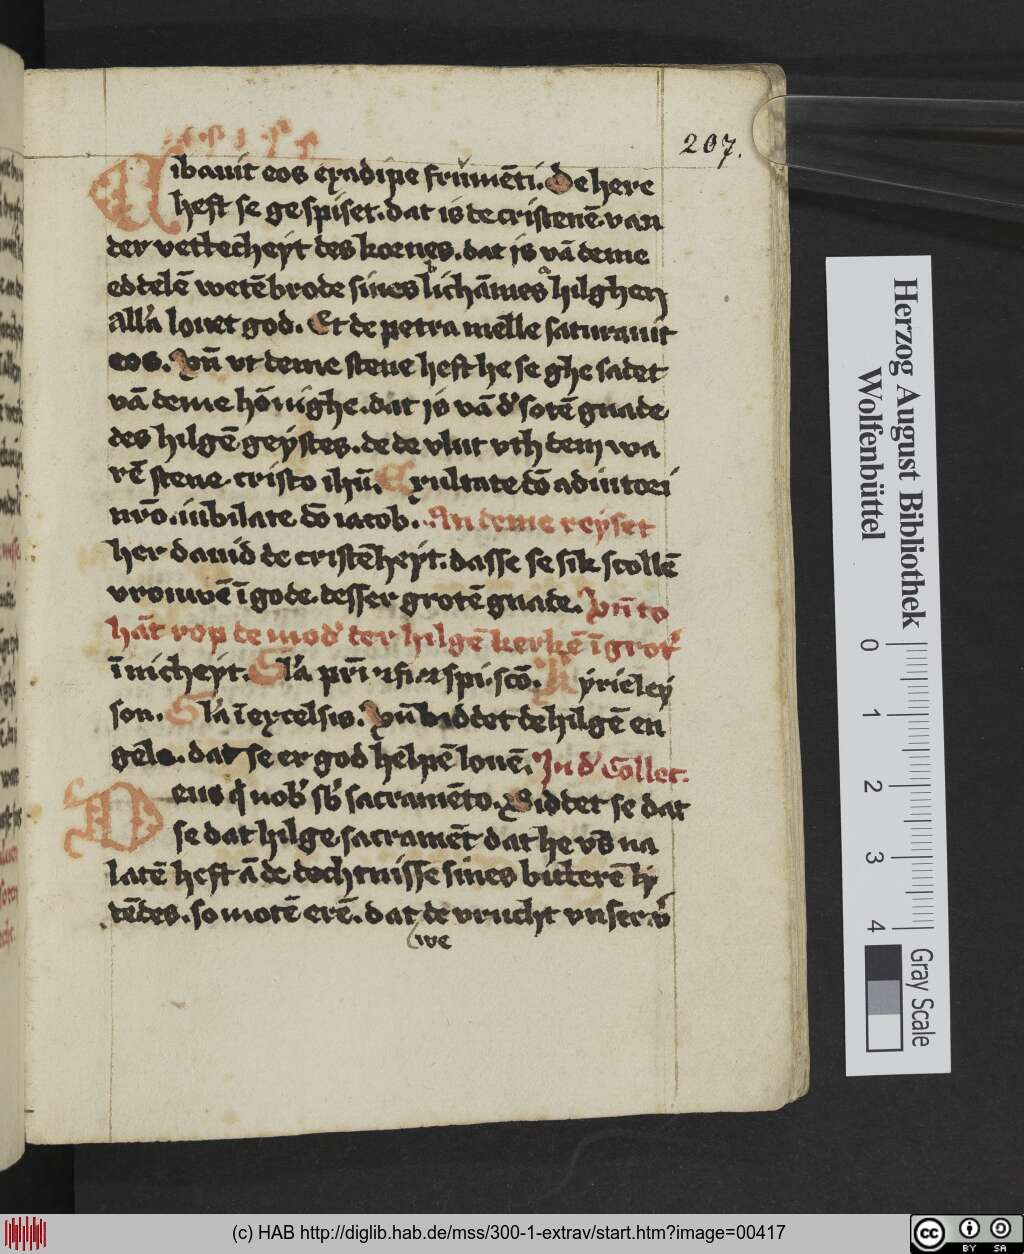 207.
Cibauit eos exadipe frumēti. De here
heft se ge spiset. dat is de cristenē. van
der vetlecheyt des kornes. dat is vā deme
eddelē wetēbrode sines lichāmes hilghen
all'a louet god. Et de petra melle saturauit
eos. Vn̄ vt deme stene heft he se ghe sadet
vā deme hōnighe. dat is vā d' sotē gnade
des hilgē geystes. de de vlut vth dem wa
rē stene. cristo ihū. Exultate dō adiutori
nr̄o. iubilate dō iacob. An deme reyset
her dauid de cristēheyt. dasse se sik scollē
vrouwē ī gode. desser grotē gnade. Vn̄ to
hāt rop de mod' der hilgē kerkē ī grot'
īnicheyt. Gl'a pr̄i ⁊ fi ⁊ spi. scō. Kyrieley
son. Gl'a ī excelsis. Vn̄ biddet de hilgē en
gele. dat se er god helpē louē. In d' Collet.
Deus q̄ nob' sb' sacramēto. Biddet se dat
se dat hilge sacramēt dat he vs na
latē heft ā de dechtnisse sines bitterē ly
dēdes. so motē erē. dat de vrucht vnser v'
we
Herzog August Bibliothek
Wolfenbüttel
0 1 2 3 4
Gray Scale
(c) HAB http://diglib.hab.de/mss/300-1-extrav/start.htm?image=00417
cc BY SA